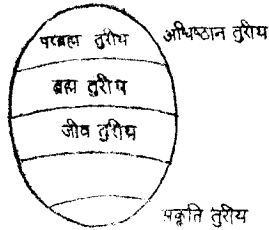 परब्रह्म तुरीय अधिष्ठान तुरीय
ब्रह्म तुरीय
जीव तुरीय
प्रकृति तुरीय